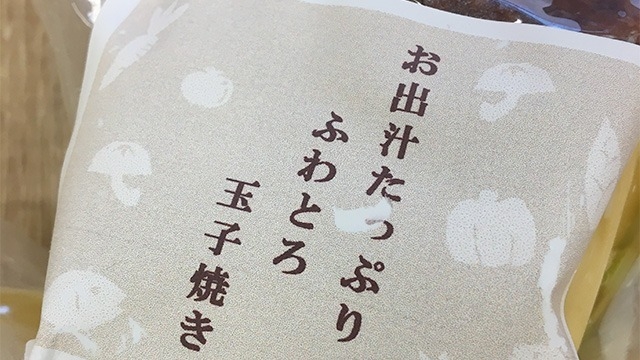 お出汁たっぷり
ふわとろ
玉子焼き